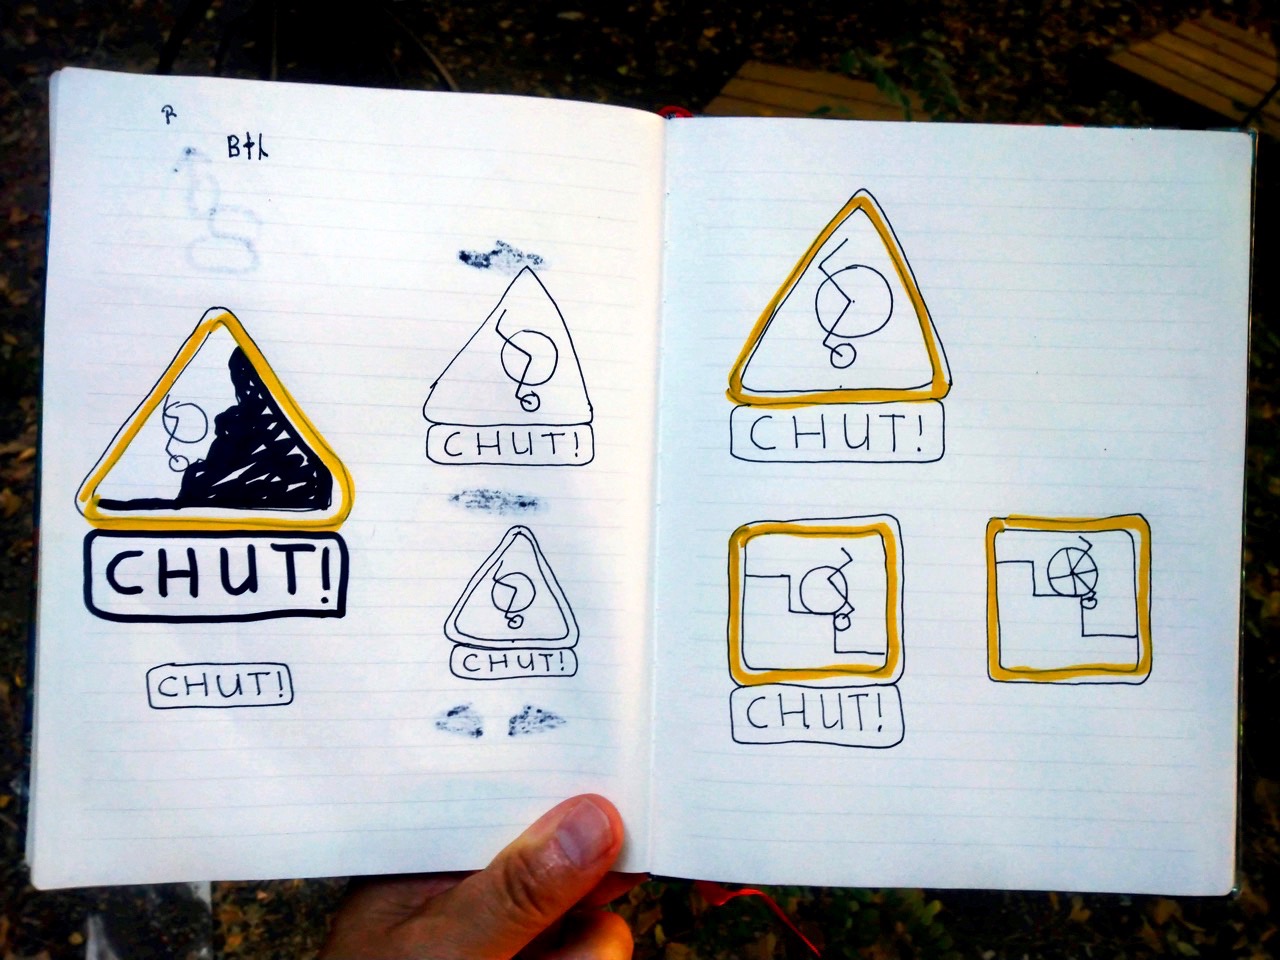 CHUT!
CHUT!
CHUT!
CHUT!
CHUT!
CHUT!